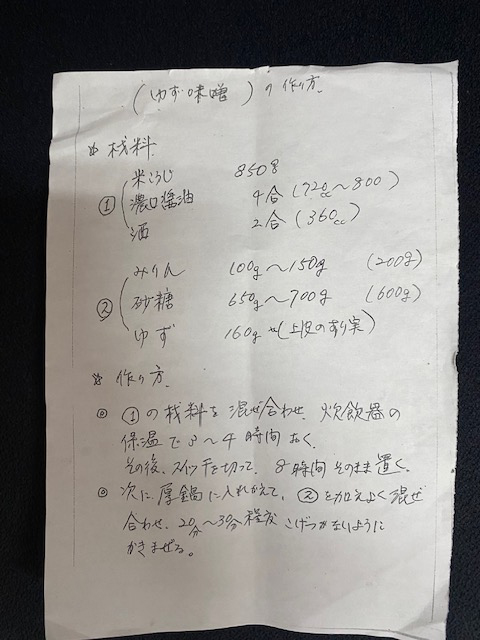 (ゆず味噌)の作り方
☆ 材料
① 米こうじ 850g
濃口醤油 4合(720cc〜800)
酒 2合(360cc)
② みりん 100g〜150g (200g)
砂糖 650g〜700g (600g)
ゆず 160g (上皮のすり実)
☆ 作り方
◎ ①の材料を混ぜ合わせ、炊飯器の
保温で3〜4時間おく。
その後、スイッチを切って、8時間そのまま置く。
◎ 次に厚鍋に入れかえて、②を加えよく混ぜ
合わせ、20分〜30分程度こげつかないように
かきまぜる。